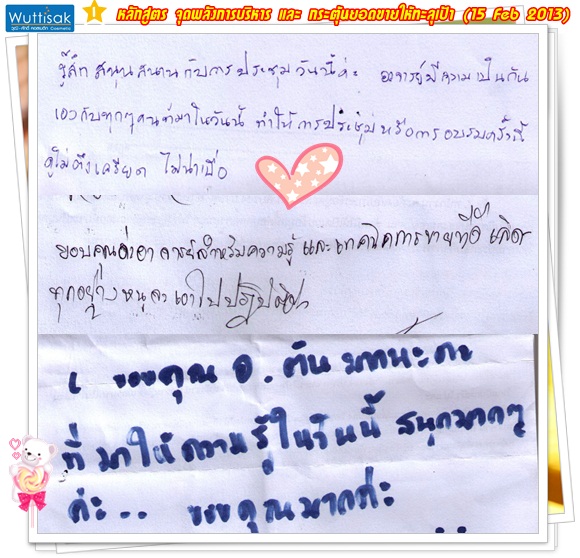 Wuttisak
วุฒิ-ศักดิ์ คอสเมติก Cosmetic
1 หลักสูตร จุดพลังการบริหาร และ กระตุ้นยอดขายให้ทะลุเป้า (15 Feb 2013)
รู้สึก สนุกสนานกับการประชุมวันนี้ค่ะ อาจารย์มีความเป็นกัน
เองกับทุกๆคนที่มาในวันนี้ ทำให้การประชุมหรือการอบรมครั้งนี้
ดูไม่ตึงเครียด ไม่น่าเบื่อ
ขอบคุณค่ะอาจารย์สำหรับความรู้ และเทคนิคการขายที่ดีเลิศ
ทุกอย่าง หนูจะเอาไปปฏิบัติ
ขอบคุณ อ. ตัน มากนะคะ
ที่มาให้ความรู้ในวันนี้ สนุกมากๆ
ค่ะ.. ขอบคุณมากค่ะ